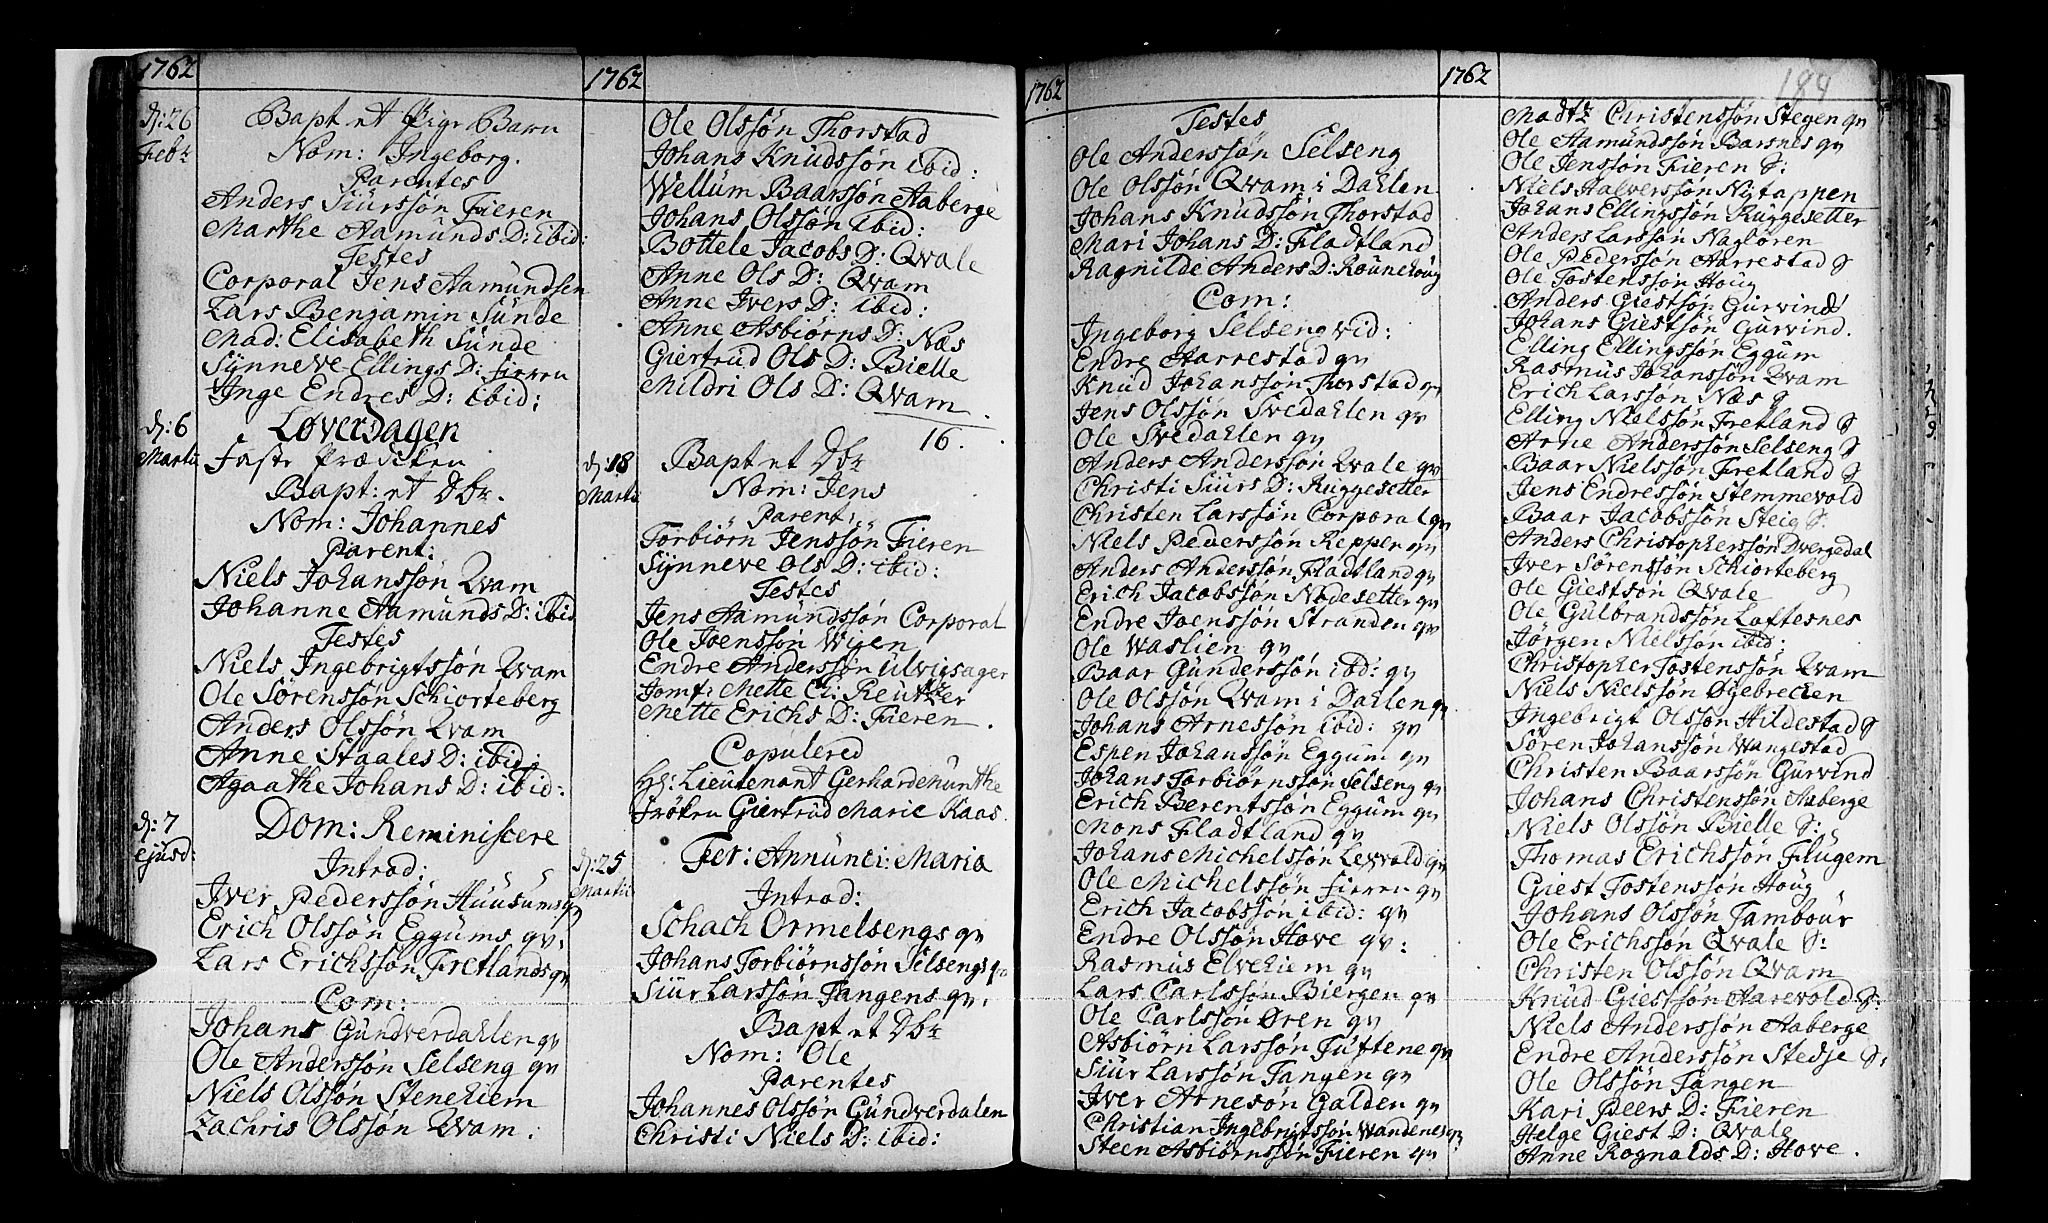 1762
dj: 26 Febr
Bapt et Pige Barn
Nom: Ingeborg.
Parentes
Anders Siurssøn Fieren
Marthe Aamunds D: ibid:
Testes
Corporal Jens Aamundsen
Lars Benjamin Sunde
Mad: Elisabeth Sunde
Synneve Ellings D: Fieren
Inge Endres D: ibid:
dj: 6 Martii
Løverdagen
Faste Prædiken
Bapt: et Dbr.
Nom: Johannes
Parent:
Niels Johanssøn Qvam
Johanne Aamunds D: ibid
Testes
Niels Ingebrigtssøn Qvam
Ole Sørenssøn Schiorteberg
Anders Olssøn Qvam
Anne Staales D: ibid:
Agaathe Johans D: ibid:
dj: 7 ejusd:
Dom: Reminiscere
Introd:
Iver Pederssøn Huusums qv
Erich Olssøn Eggums qv:
Lars Erichssøn Fretlands qv
Com:
Johans Gundverdahlen qv
Ole Anderssøn Selseng qv
Niels Olssøn Stenehiem
Zachris Olssøn Qvam:
1762
Ole Olssøn Thorstad
Johans Knudssøn ibid:
Wellum Baarssøn Aaberge
Johans Olssøn ibid:
Bottele Jacobs D: Qvale
Anne Ols D: Qvam
Anne Ivers D: ibid:
Anne Asbiørns D: Næs
Giertrud Ols D: Bielle
Mildri Ols D: Qvam
16.
dj: 18 Martii
Bapt et Dbr
Nom: Jens
Parent:
Torbiørn Jenssøn Fieren
Synneve Ols D: ibid:
Testes
Jens Aamundssøn Corporal
Ole Joenssøn Wigen
Endre Anderssøn Ulvigsager
Jomf: Mette Cl: Reutzer
Mette Erichs D: Fieren.
Copulered
Hr: Lieutenant Gerhardt Munthe
Frøken Giertrud Marie Kaas
dj: 25 Martii
Fer: Annunci: Maria
Introd:
Schach Ormelsengs qv
Johans Torbiørnssøn Selsengs qv
Siur Larssøn Tangens qv.
Bapt et Dbr
Nom: Ole
Parentes
Johannes Olssøn Gundverdalen
Christi Niels D: ibid:
1762
Testes
Ole Anderssøn Selseng
Ole Olssøn Qvam i Dahlen
Johans Knudssøn Thorstad
Mari Johans D: Fladtland
Ragnilde Anders D: Rounehoug
Com:
Ingeborg Selseng vid:
Endre Aarrestad qv
Knud Johanssøn Thorstad qv
Jens Olssøn Svedahlen qv
Ole Svedahlen qv
Anders Anderssøn Qvale qv
Christi Siurs D: Ruggesetter
Christen Larssøn Corporal qv
Niels Pederssøn Reppen qv
Anders Anderssøn Fladtland qv
Erich Jacobssøn Nødesetter qv
Endre Joenssøn Stranden qv
Ole Waslien qv
Baar Gunderssøn ibd: qv
Ole Olssøn Qvam i Dahlen qv
Johans Arnessøn ibid: qv
Espen Johanssøn Eggum qv
Johans Torbiørnssøn Selseng qv
Erich Berentssøn Eggum qv
Mons Fladtland qv
Johans Michelssøn Lewold qv
Ole Michelssøn Fieren qv
Erich Jacobssøn ibid: qv
Endre Olssøn Hove qv:
Rasmus Elvehiem qv
Lars Carlssøn Biergen qv
Ole Carlssøn Øren qv
Asbiørn Larssøn Tuftene qv
Siur Larssøn Tangen qv
Iver Arnesøn Galden qv
Christian Ingebrigtssøn Wandenes qv
Steen Asbiørnssøn Fieren qv
1762
184
Madtz Christenssøn Stegen qv
Ole Aamundssøn Barsnes qv
Ole Jenssøn Fieren S:
Niels Halverssøn Nytappen
Johans Ellingssøn Ruggesetter
Anders Larssøn Nagløren
Ole Pederssøn Aarrestad S
Ole Tostenssøn Houg
Anders Giestsøn Gurvind
Johans Giestsøn Gurvind.
Elling Ellingssøn Eggum
Rasmus Johanssøn Qvam
Erich Larssøn Næs S
Elling Nielssøn Fretland S
Arne Anderssøn Selseng S
Baar Nielssøn Fretland S
Jens Endressøn Stemmevold
Baar Jacobssøn Steig S:
Anders Christopherssøn Dvergedal
Iver Sørenssøn Schiorteberg
Ole Giestsøn Qvale
Ole Gulbrandssøn Loftesnes
Jørgen Nielssøn ibid:
Christopher Tostenssøn Qvam
Niels Nielssøn Øgebrechen
Ingebrigt Olssøn Hildestad S
Søren Johanssøn Wangestad
Christen Baarssøn Gurvind
Johans Christenssøn Aaberge
Niels Olssøn Bielle S:
Thomas Erichssøn Flugem
Giest Tostenssøn Houg
Johans Olssøn Tambour
Ole Erichssøn Qvale S:
Christen Olssøn Qvam
Knud Giestsøn Aarevold S:
Niels Anderssøn Aaberge
Endre Anderssøn Stedje S:
Ole Olssøn Tangen
Kari Peers D: Fieren
Helge Giest D: Qvale
Anne Rognalds D: Hove.